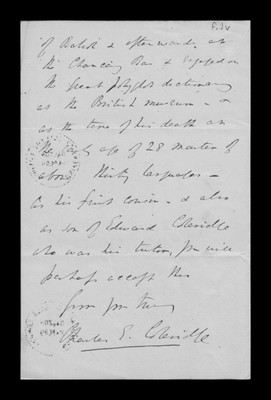 of Balliol & afterwards at
the Chancery Bar & engaged on
the great polyglot dictionary
at the British Museum - &
at the time of his death at
the early age of 28 master of
about thirty languages -
As his first cousin - & also
as son of Edward Coleridge
who was his tutor, you will
perhaps accept this
from yrs truly
Charles E. Coleridge